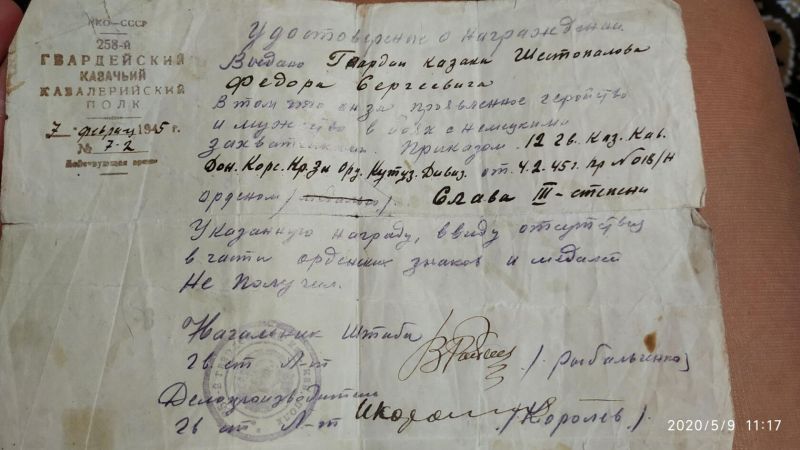 НКО–СССР
258-й
ГВАРДЕЙСКИЙ
КАЗАЧИЙ
КАВАЛЕРИЙСКИЙ
ПОЛК
7 февраля 1945 г.
№ 7-2
Действующая армия
Удостоверение о награждении
Выдано Гвардии казаки Шестопалова
Федора Сергеевича
В том что он за проявленное геройство
и мужество в боях с немецкими
захватчиками. Приказом 12 Гв. Каз. Кав.
Дон. Корс. Кр. Зн Орд. Кутуз. Дивиз. от 4.2.45г. Пр №018/н
орденом /медалью/. Слава III-степени
Указанную награду, ввиду отсутствия
в части орденских знаков и медалей
Не получил.
Начальник Штаба
Гв ст Л-т /Рыбальченко/
Делопроизводитель
Гв ст Л-т /Королев/.
2020/5/9 11:17